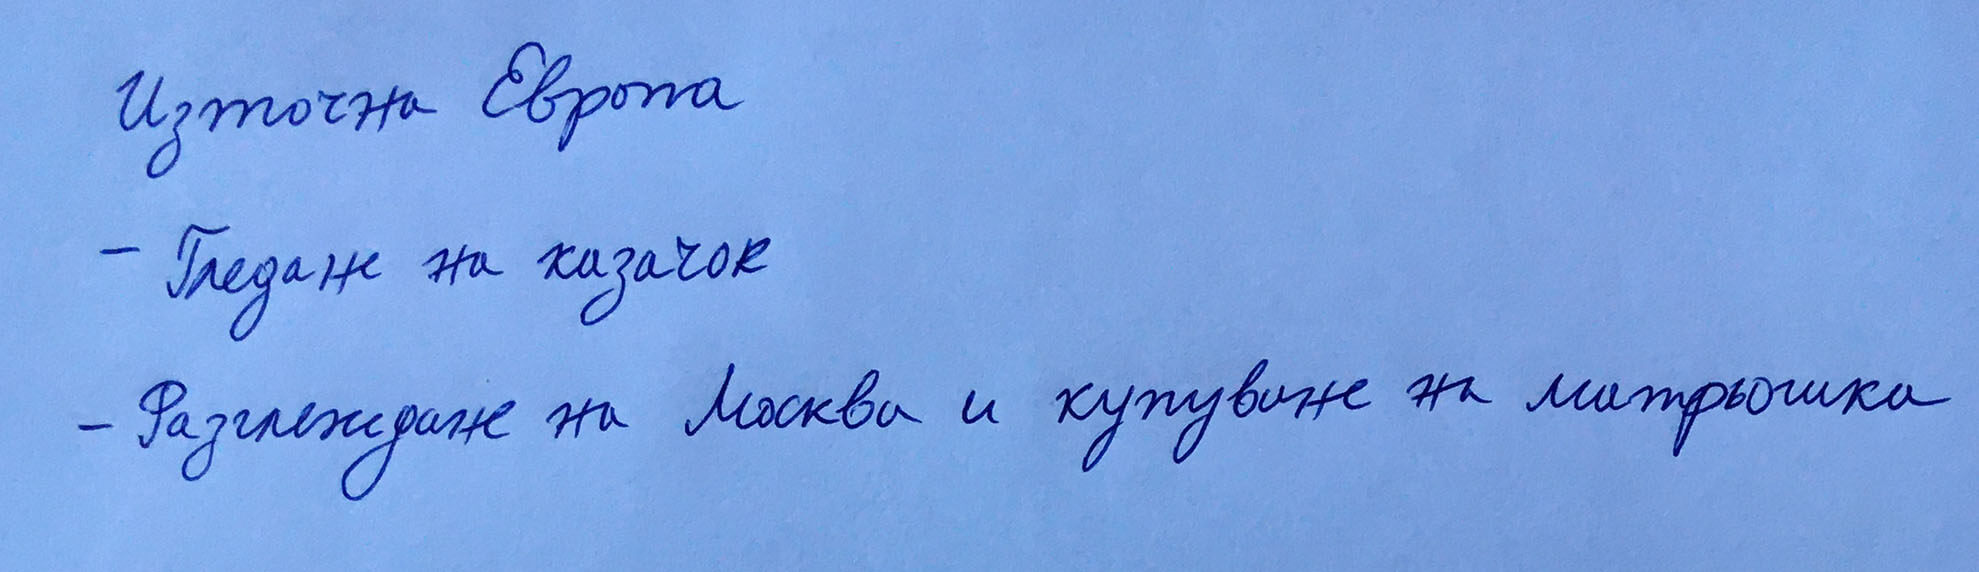 Източна Европа
- Гледане на казачок
- Разглеждане на Москва и купуване на матрьошка